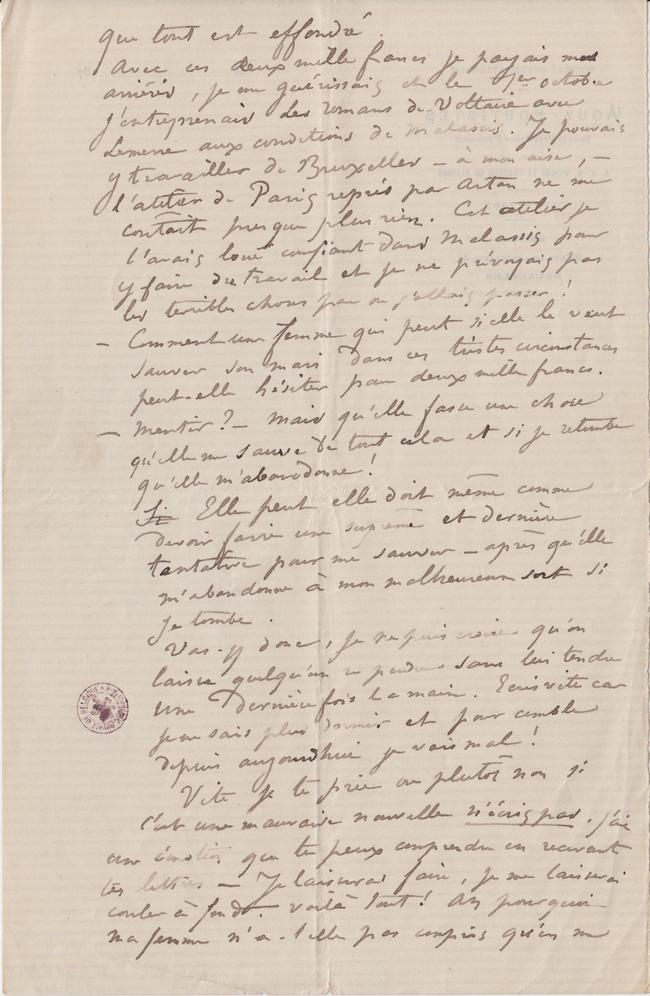 que tout est effondré.
Avec ces deux mille francs je payais mon
arriéré, je me guérissais et le 1er octobre
j'entreprenais les romans de Voltaire avec
Lemerre aux conditions de Malassis. Je pouvais
y travailler de Bruxelles – à mon aise, –
l'atelier de Paris repris par Artan ne me
coûtait presque plus rien. Cet atelier je
l'avais loué confiant dans Malassis pour
y faire du travail et je ne prévoyais pas
les terribles choses par où j'allais passer!
– Comment une femme qui peut si elle le veut
sauver son mari dans ces tristes circonstances
peut-elle hésiter pour deux mille francs.
– Mentir? – Mais qu'elle fasse une chose
qu'elle me sauve de tout cela et si je retombe
qu'elle m'abandonne!
Si Elle peut elle doit même comme
devoir faire une suprême et dernière
tentative pour me sauver – après qu'elle
m'abandonne à mon malheureux sort si
je tombe.
Vas-y donc, je ne puis croire qu'on
laisse quelqu'un se perdre sans lui tendre
une dernière fois la main. Ecris vite car
je ne sais plus dormir et pour comble
depuis aujourdhui je vais mal!
Vite je te prie ou plutôt non si
c'est une mauvaise nouvelle n'écris pas. j'ai
une émotion que tu peux comprendre en recevant
tes lettres – Je laisserai faire, je me laisserai
couler à fond. voilà tout! Ah pourquoi
ma femme n'a-t-elle pas compris qu'en me